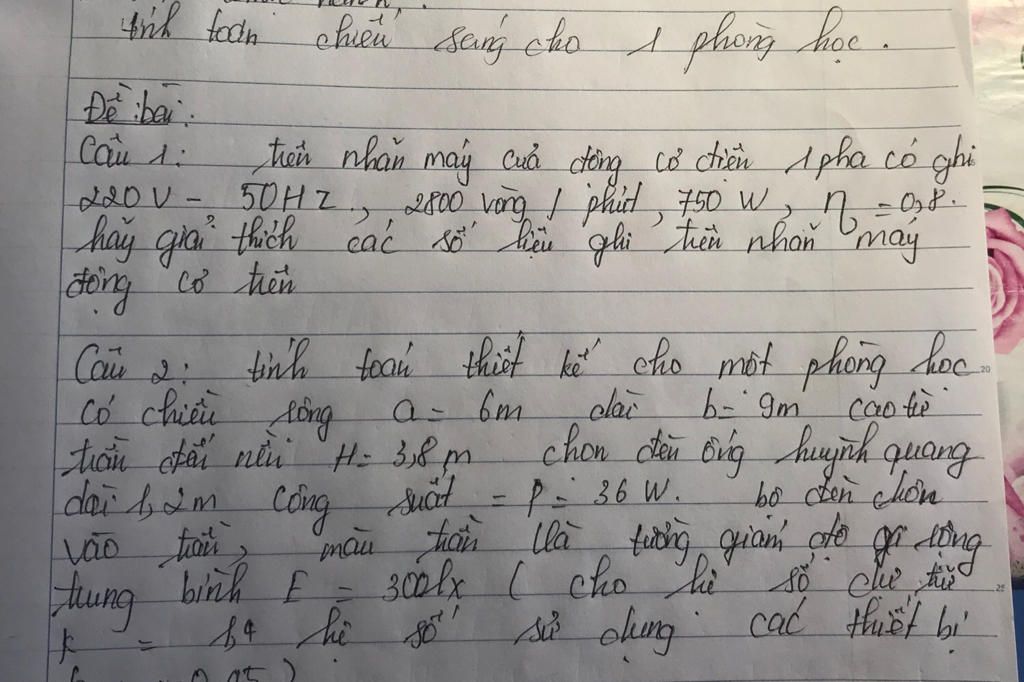 tính toán chiếu sáng cho 1 phòng học.
Đề bài:
Câu 1: trên nhãn máy của động cơ điện 1 pha có ghi
220V - 50HZ, 2800 vòng / phút, 750 W, η = 0,8.
hãy giải thích các số liệu ghi trên nhãn máy
động cơ trên
Câu 2: tính toán thiết kế cho một phòng học
có chiều rông a = 6m dài b = 9m cao từ
trần đến nền H = 3,8 m chon đèn ống huỳnh quang
dài 1,2m công suất = P = 36 W. bô đèn chôn
vào trần, màu trần là tường giám đô rông
trung bình E = 300lx ( cho hê số dư trữ
k = 1,4 hê số sử dung các thiết bị